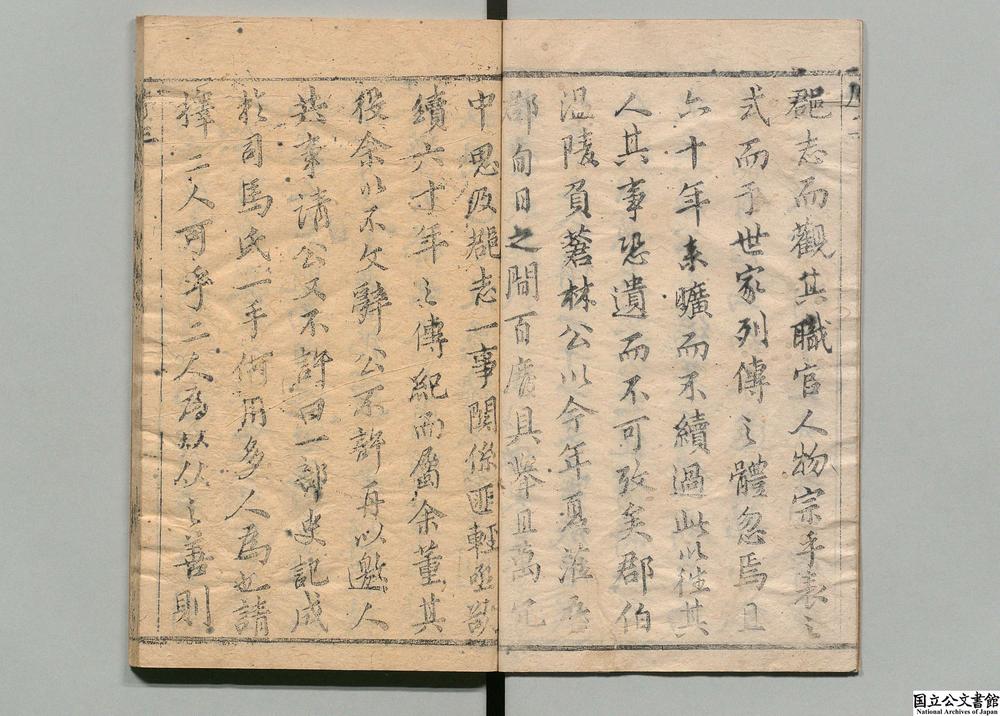 郡志而觀其職官人物宗乎表之
式而于世家列傳之體忽焉且
六十年來曠而不續過此以往其
人其事恐遺而不可攷矣郡伯
溫陵負蒼林公以今年夏蒞吾
郡旬日之間百廢具舉且萬冗
中思及郡志一事関係匪輕亟欲
續六十年之傳紀而屬余董其
役余以不文辭公不許再以邀人
共事請公又不許曰一部史記成
於司馬氏一手何用多人為也請
擇二人可乎二人為 從之善則
国立公文書館
National Archives of Japan